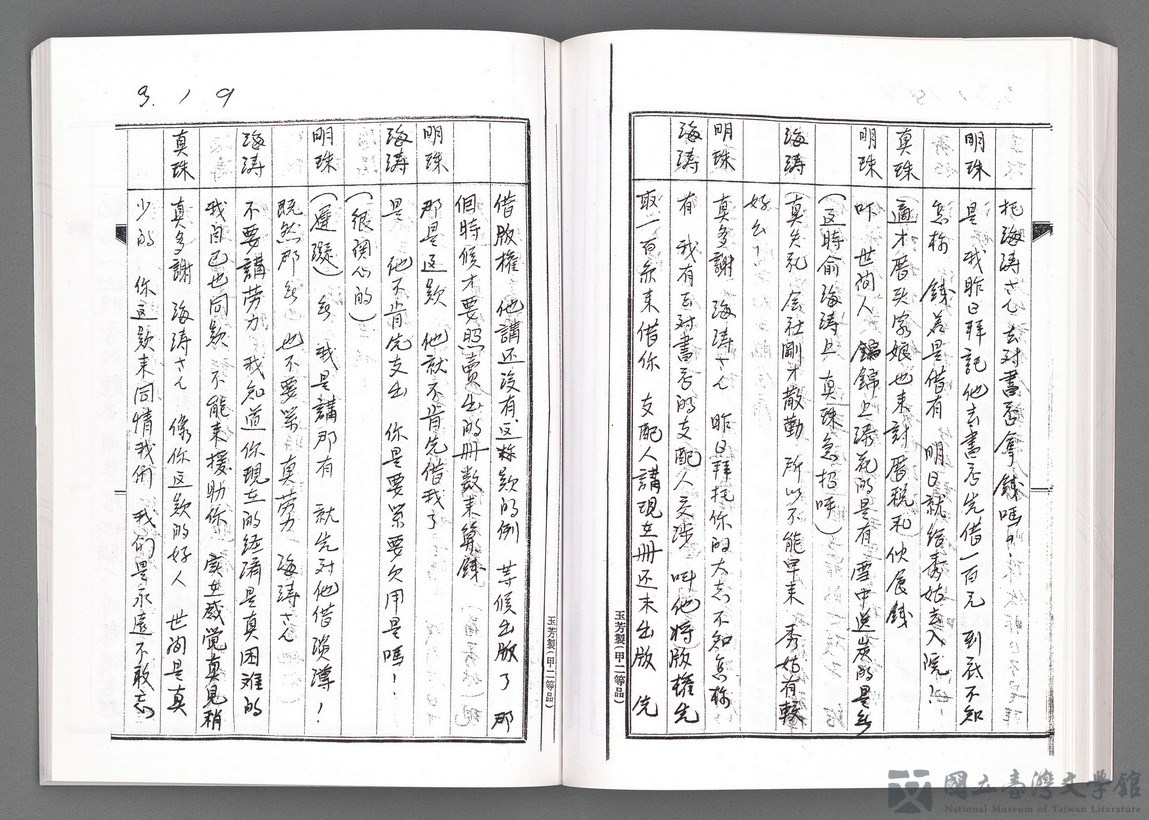 把海涛さん去对書局拿錢嗎?
明珠 是 我昨日拜託他去書局先借一百元 到底不知
怎称 錢若是借有 明日就給秀姑去入院!
真珠 適才厝頭家娘也来討厝稅和伙食錢
明珠 咳 世间人 錦錦上添花的是有 雪中送炭的是無
(這時俞海涛上 真珠急招呼)
海涛 真失礼 会社剛才散勤 所以不能早来 秀姑有較
好么?
明珠 真多謝 海涛さん 昨日拜托你的大志不知怎称
海涛 有 我有去对書局的支配人交涉 叫他將版權先
取一百元来借你 支配人講現在册还未出版 先
借版權 他講还没有这称款的例 等候出版了 那
個時候才要照賣出的册数来算錢
明珠 那是这款 他就不肯先借我了
海涛 是 他不肯先支出 你是要緊要欠用是嗎!
(很関心的)
明珠 (遲疑) 無 我是講那有 就先对他借淡薄!
既然那無 也不要緊 真劳力 海涛さん
海涛 不要講劳力 我知道你現在的經濟是真困难的
我自己也同款 不能来援助你 实在感覚真見稍
真珠 真多謝 海涛さん 像你这款的好人 世间是真
少的 你这款来同情我们 我们是永遠不敢忘
3. 1 9
玉芳製(甲二等品)
玉芳製(甲二等品)
國立臺灣文學館
National Museum of Taiwan Literature